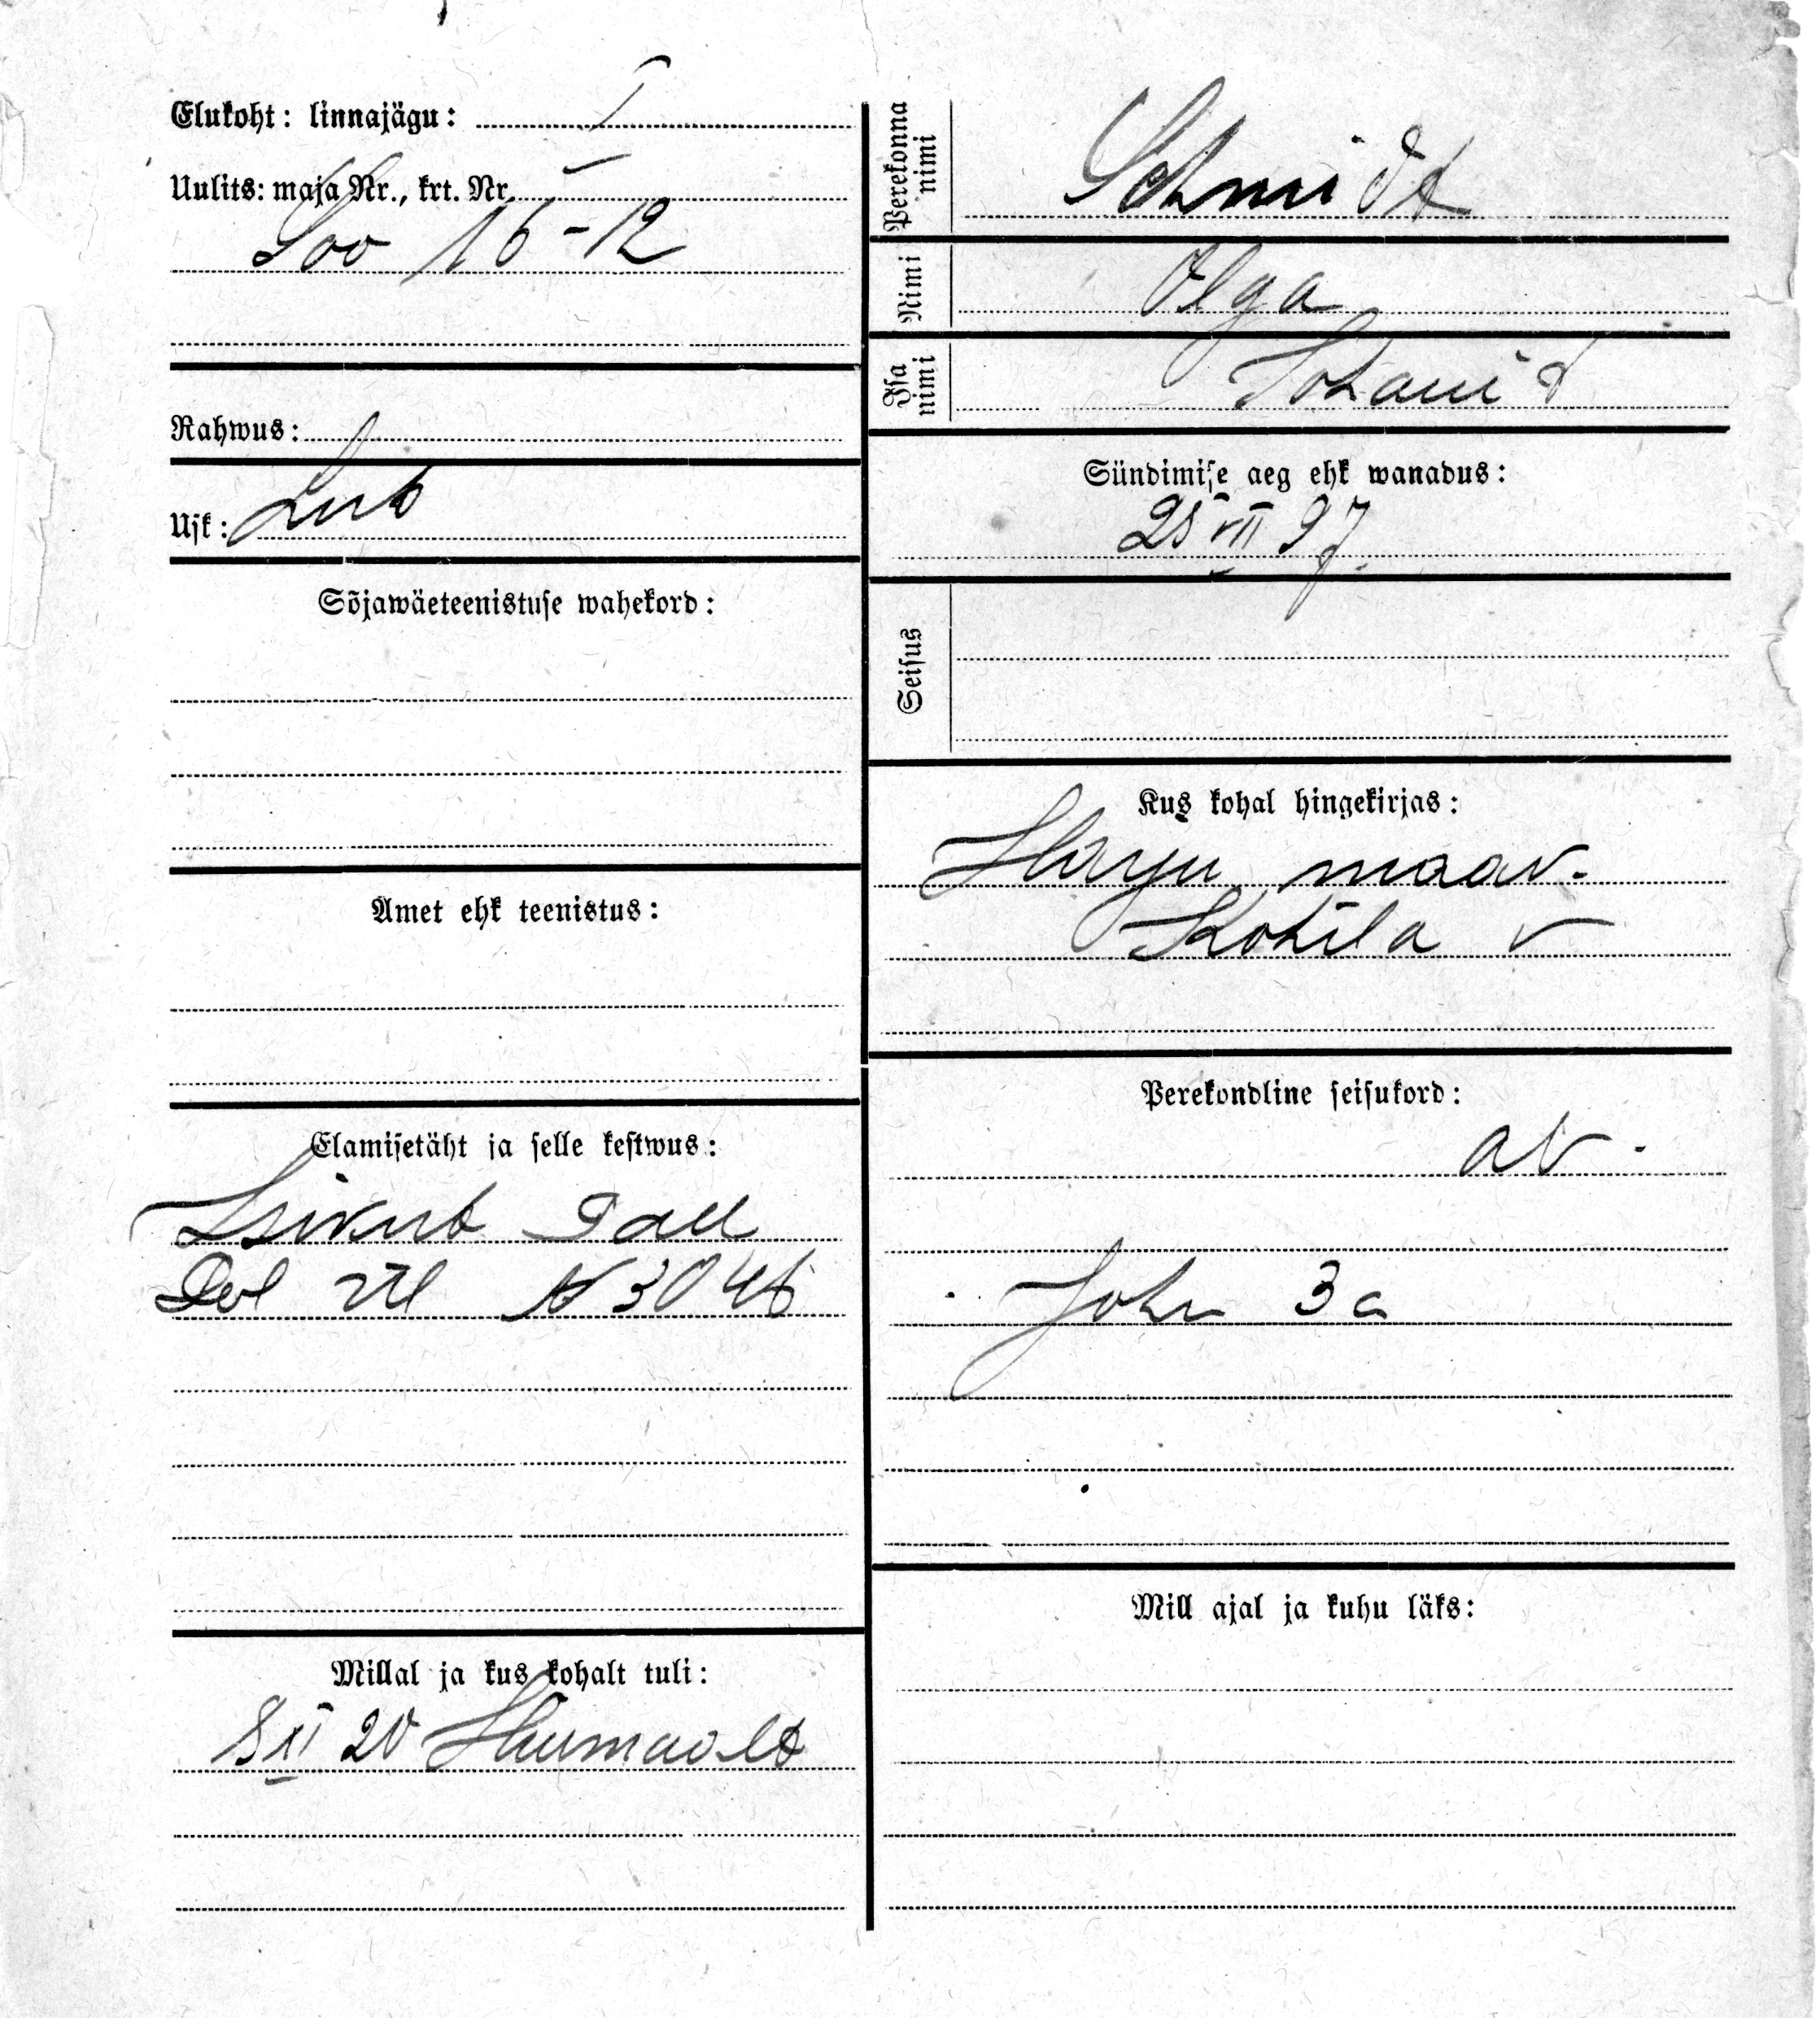 Elukoht: linnajägu: I
Uulits: maja Nr., krt. Nr.
Soo 16-12
Rahwus:
Usk: Lut
Sõjawäeteenistuse wahekord:
Amet ehk teenistus:
Elamisetäht ja selle kestwus:
Isikut Tall
N 3046
Millal ja kus kohalt tuli:
8 XI 20 Hiiumaalt
Perekonna nimi
Schmidt
Nimi
Olga
Isa nimi
Sündimise aeg ehk wanadus:
25 VII 97.
Seisus
Kus kohal hingekirjas:
Harju maav.
Kohila v
Perekondline seisukord:
ab.
Joh 3 a
Mill ajal ja kuhu läks: